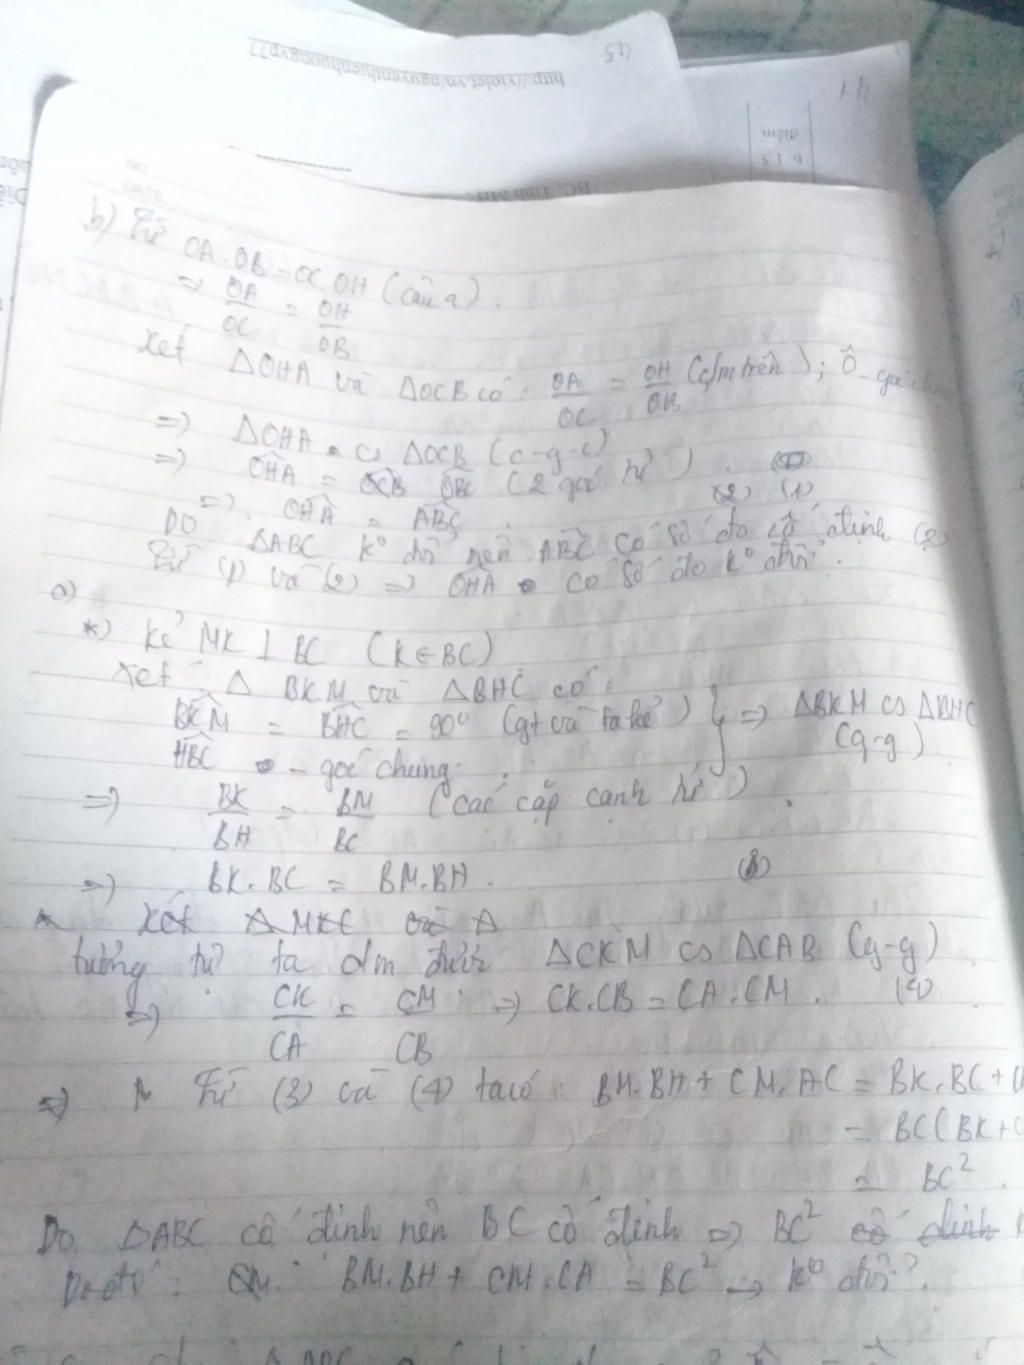 http://violet.vn/nguyenthienhuongvp77
45
41
điểm
b. 1.5
b) Từ OA.OB = OC.OH (câu a).
=> OA/OC = OH/OB
Xét ΔOHA và ΔOCB có: OA/OC = OH/OB (c/m trên); Ô - góc
=> ΔOHA ∽ ΔOCB (c-g-c)
=> OHA = OBC (2 góc tứ).
=> OHA = ABC. (2) (1)
Do ΔABC k° đổi nên ABC có số đo cố định (2)
Từ (1) và (2) => OHA có số đo k° đổi.
a)
*) Kẻ MK ⊥ BC (K ∈ BC)
Xét Δ BKM và ΔBHC có:
BKM = BHC = 90° (gt và ta kẻ) } => ΔBKM ∽ ΔBHC
HBC - góc chung. (g-g)
=> BK/BH = BM/BC (các cặp cạnh tứ).
=> BK.BC = BM.BH. (3)
Xét ΔMKC và Δ
tương tự ta cm được ΔCKM ∽ ΔCAB (g-g)
=> CK/CA = CM/CB => CK.CB = CA.CM. (4)
=> Từ (3) và (4) ta có: BM.BH + CM.AC = BK.BC +
= BC(BK+
= BC².
Do ΔABC cố định nên BC cố định => BC² cố định
Do đó: CM: BM.BH + CM.CA = BC² → k° đổi.